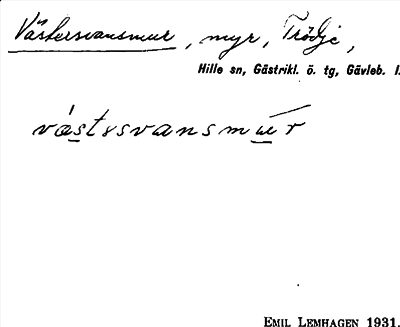 Västersvansmur, myr, Trödje,
Hille sn, Gästrikl. ö. tg, Gävleb. l.
vástəsvansmūr
EMIL LEMHAGEN 1931.